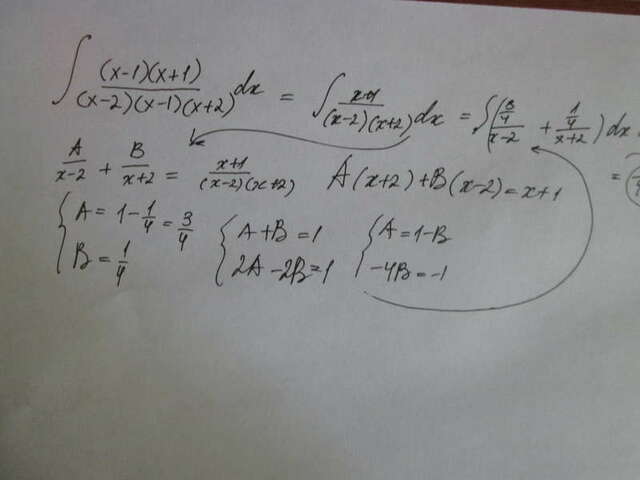 ∫ (x-1)(x+1)/((x-2)(x-1)(x+2)) dx = ∫ (x+1)/((x-2)(x+2)) dx = ∫ ((3/4)/(x-2) + (1/4)/(x+2)) dx
A/(x-2) + B/(x+2) = (x+1)/((x-2)(x+2)) A(x+2)+B(x-2)=x+1 =
{ A = 1-1/4 = 3/4 { A+B=1 { A=1-B
B = 1/4 2A-2B=1 -4B=-1